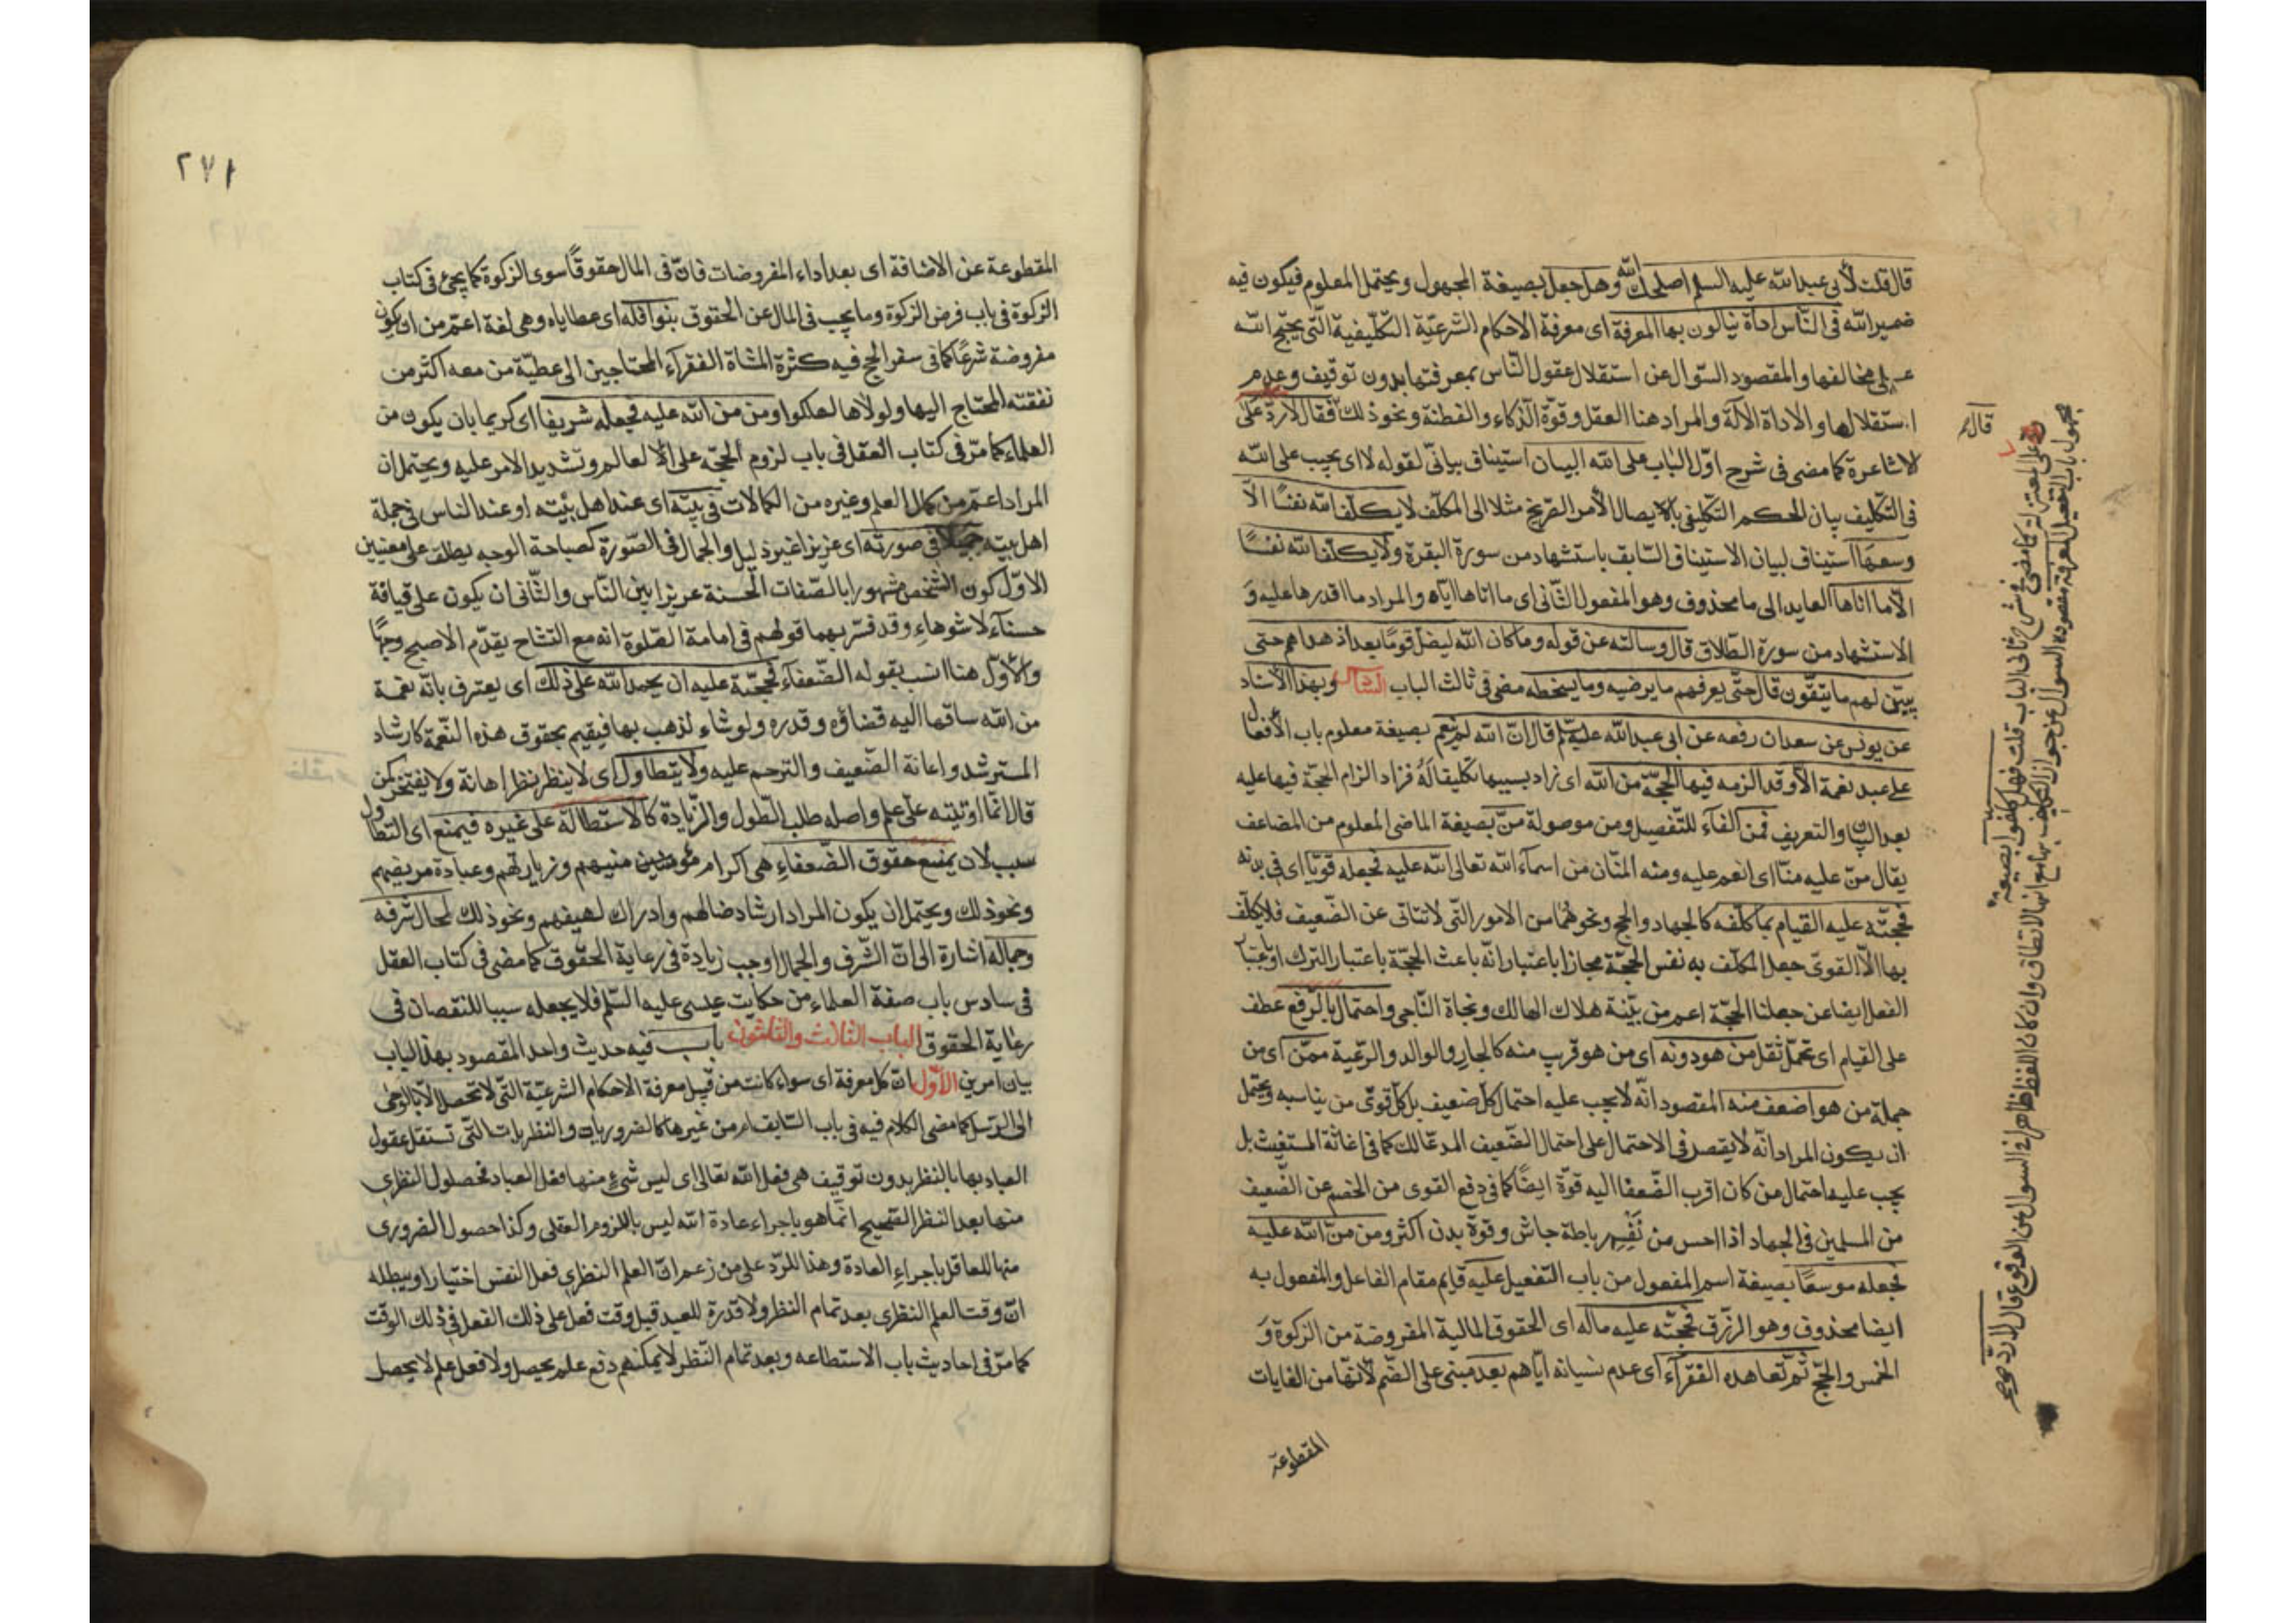 قال قلت لأبى عبد الله عليه السلم اصلحك الله وهل جعل بصيغة المجهول ويحتمل المعلوم فيكون فيه
ضمير الله فى الناس اداة ينالون بها المعرفة اى معرفة الاحكام الشرعيّة التكليفية الّتى يحتج الله
على مخالفها والمقصود السّوال عن استقلال عقول النّاس بمعرفتها بدون توقيف وعدم
استقلالها والاداة الآلة والمراد هنا العقل وقوّة الذكاء والفطنة ونحو ذلك فقال لا ردّ على
الاشاعرة كما مضى فى شرح اوّل الباب على الله البيان استيناف بيانّى لقوله لا اى يجب على الله
فى التكليف بيان الحكم التكليفى بايصال الأمر الصّريح مثلا الى المكلّف لا يكلّف الله نفسًا الّا
وسعها استيناف لبيان الاستيناف السّابق باستشهاد من سورة البقرة ولا يكلّف الله نفسًا
الّا ما اتاها العايد الى ما محذوف وهو المفعول الثّانى اى ما اتاها ايّاه والمراد ما اقدرها عليه و
الاستشهاد من سورة الطّلاق قال وسالته عن قوله وما كان الله ليضلّ قومًا بعد اذ هداهم حتى
يبيّن لهم ما يتّقون قال حتّى يعرفهم ما يرضيه وما يسخطه مضى فى ثالث الباب الثالث وبهذا الاسناد
عن يونس عن سعدان رفعه عن ابى عبد الله عليه السلم قال انّ الله لم ينعم بصيغة معلوم باب الأفعال
على عبد نعمة الّا وقد الزمه فيها الحجّة من الله اى زاد بسببها تكليفا له فزاد الزام الحجّة فيها عليه
بعد البيان والتعريف فمن الفآء للتّفصيل ومن موصولة منّ بصيغة الماضى المعلوم من المضاعف
يقال منّ عليه منّا اى انعم عليه ومنه المنّان من اسمآء الله تعالى الله عليه فجعله قويّا اى فى بدنه
فحجّته عليه القيام بما كلّفه كالجهاد والحج ونحوهما من الامور الّتى لا تتاتى عن الضّعيف فلا يكلّف
بها الّا القوىّ جعل المكلّف به نفس الحجّة مجازا باعتبار انّه باعث الحجّة باعتبار الترك او باعتبار
الفعل ايضا عن جعلنا الحجّة اعم من بيّنة هلاك الهالك ونجاة النّاجى واحتمال بالرّفع عطف
على القيام اى تحمّل ثقل من هو دونه اى من هو قريب منه كالجار والوالد والرّعية ممّن اى من
جملة من هو اضعف منه المقصود انّه لا يجب عليه احتمال كل ضعيف بل كل قوىّ من يناسبه ويحتمل
ان يكون المراد انّه لا يقصد فى الاحتمال على احتمال الضّعيف كما فى اغاثة المستغيث بل
يجب عليه احتمال من كان اقرب الضّعفا اليه قوّة ايضًا كما فى دفع القوى من الخصم عن الضّعيف
من المسلمين فى الجهاد اذا احس من نَفْسِه رباطة جاش وقوة بدن اكثر ومن منّ الله عليه
فجعله موسعًا بصيغة اسم المفعول من باب التفعيل عليه قايم مقام الفاعل والمفعول به
ايضا محذوف وهو الرزق فحجّته عليه ماله اى الحقوق المالية المفروضة من الزكوة وَ
الخمس والحجّ ثم تعاهده الفقرآء اى عدم نسيانه ايّاهم بعد مبنى على الضّم لانّها من الغايات
المقطوعة
قال لا
ردّ على المعتزلة كما مضى فى شرح ثانى الباب قلت فهل كلّفوا بصيغة
مجهول باب التفعيل المعرفة مقصوده السوال عن جواز التكليف بها مع انها لا تطاق وان كان اللفظ ظاهرا فى السوال عن الوقوع قال لا ردّ
٢٧١
المقطوعة عن الاضافة اى بعد اداء المفروضات فانّ فى المال حقوقًا سوى الزكوة كما يجئ فى كتاب
الزكوة فى باب فرض الزكوة وما يجب فى المال عن الحقوق بنوافله اى عطاياه وهى لغة اعمّ من ان يكون
مفروضة شرعًا كما فى سفر الحج فيه كثرة المشاة الفقرآء المحتاجين الى عطيّة من معه اكثر من
نفقته المحتاج اليها ولولاها لهلكوا ومن منّ الله عليه فجعله شريفا اى كريما بان يكون من
العلماء كما مرّ فى كتاب العقل فى باب لزوم الحجّة على العالم وتشديد الامر عليه ويحتمل ان
المراد اعمّ من كمال العلم وغيره من الكمالات فى بيته اى عند اهل بيته او عند الناس فى جملة
اهل بيته جميلا فى صورته اى عزيزا غير ذليل والجمال فى الصّورة كصباحة الوجه يطلق على معنيين
الاوّل كون الشخص مشهورا بالصّفات الحسنة عزيزا بين النّاس والثّانى ان يكون على قيافة
حسنآء لا شوهاء وقد فسّر بهما قولهم فى امامة الصّلوة انه مع التشاح يقدّم الاصبح وجهًا
والأوّل هنا انسب بقوله الضّعفآء فحجّته عليه ان يحمد الله على ذلك اى يعترف بانّه نعمة
من الله ساقها اليه قضاؤه وقدره ولو شاء لذهب بها فيقيم بحقوق هذه النّعمة كارشاد
المسترشد واعانة الضّعيف والترحم عليه ولا يتطاول اى لا ينظر نظر اهانة ولا يفتخر كمن
قال انّما اوتيته على علم واصله طلب الطّول والزّيادة كالاستطالة على غيره فيمنع اى التطاول
سبب لان يمنع حقوق الضّعفاء هى اكرام مؤمنين منيبهم وزيارتهم وعيادة مريضهم
ونحو ذلك ويحتمل ان يكون المراد ارشاد ضالهم وادراك لهيفهم ونحو ذلك لحال شرفه
وجماله اشارة الى انّ الشّرف والجمال اوجب زيادة فى رعاية الحقوق كما مضى فى كتاب العقل
فى سادس باب صفة العلماء من حكايت عيسى عليه السّلم فلا يجعله سببا للنقصان فى
رعاية الحقوق الباب الثالث والثلثون باب فيه حديث واحد المقصود بهذا الباب
بيان امرين الأوّل انّ كل معرفة اى سواء كانت من قبيل معرفة الاحكام الشرعيّة التّى لا تحصل الّا بالوحى
الى الرّسل كما مضى الكلام فيه فى باب السّابق ام من غيرها كالضروريات والنظريات التّى تستقل عقول
العباد بها بالنظر بدون توقيف هى فعل الله تعالى اى ليس شئ منها فعل العباد فحصول النظرى
منها بعد النظر الصّحيح انّما هو باجراء عادة الله ليس باللزوم العقلى وكذا حصول الضرورى
منها للعاقل باجراء العادة وهذا للرّد على من زعم انّ العلم النظرى فعل النفس اختيارا ويبطله
انّ وقت العلم النظرى بعد تمام النظر ولا قدرة للعبد قبل وقت فعل على ذلك الفعل فى ذلك الوقت
كما مرّ فى احاديث باب الاستطاعه وبعد تمام النّظر لا يمكنهم دفع علم يحصل ولا فعل علم لا يحصل